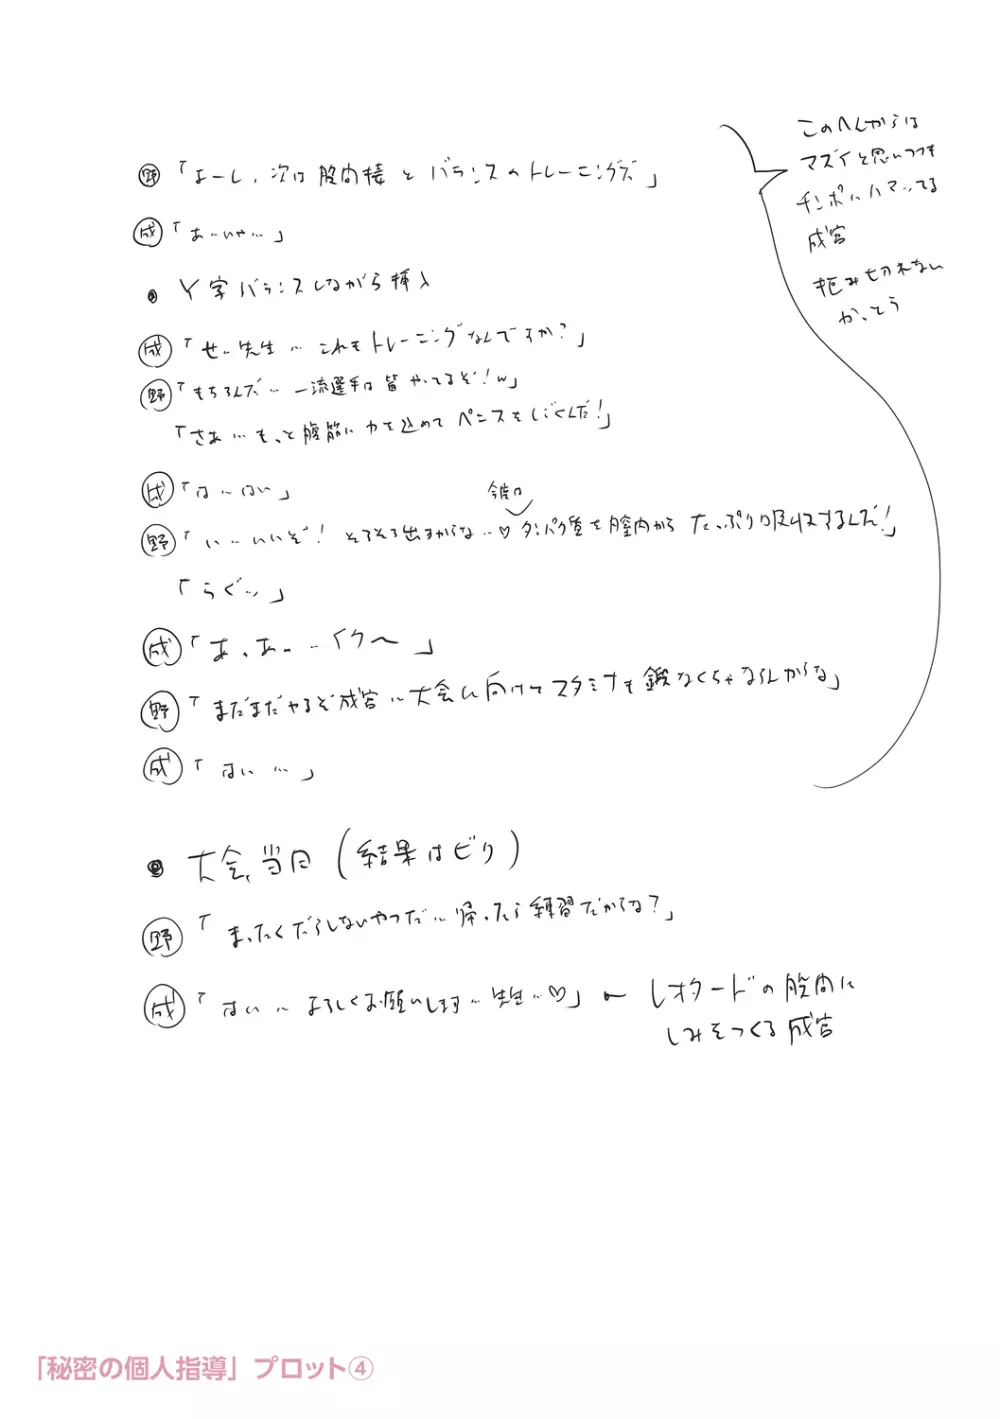 野「よーし、次は股関接とバランスのトレーニングだ」
成「あ…いや…」
● Y字バランスしながら挿入
成「せ…先生…これもトレーニングなんですか?」
野「もちろんだ…一流選手は皆やってるぞ!w」
「さあ…もっと腹筋に力を込めてペニスをしごくんだ!」
成「は…はい」
今度は
野「い…いいぞ!そろそろ出すからな…♡タンパク質を膣内からたっぷり吸収するんだ!」
「らぐ…」
成「あ、あ……イク〜」
野「まだまだやるぞ成宮…大会に向けてスタミナも鍛なくちゃならんからな」
成「はい…」
このへんからは
マズイと思いつつも
チンポにハマってる
成宮
拒み切れない
かっとう
● 大会、当日(結果はビリ)
野「まったくだらしないやつだ…帰ったら練習だからな?」
成「はい…よろしくお願いします…先生…♡」← レオタードの股間に
しみをつくる成宮
「秘密の個人指導」プロット④